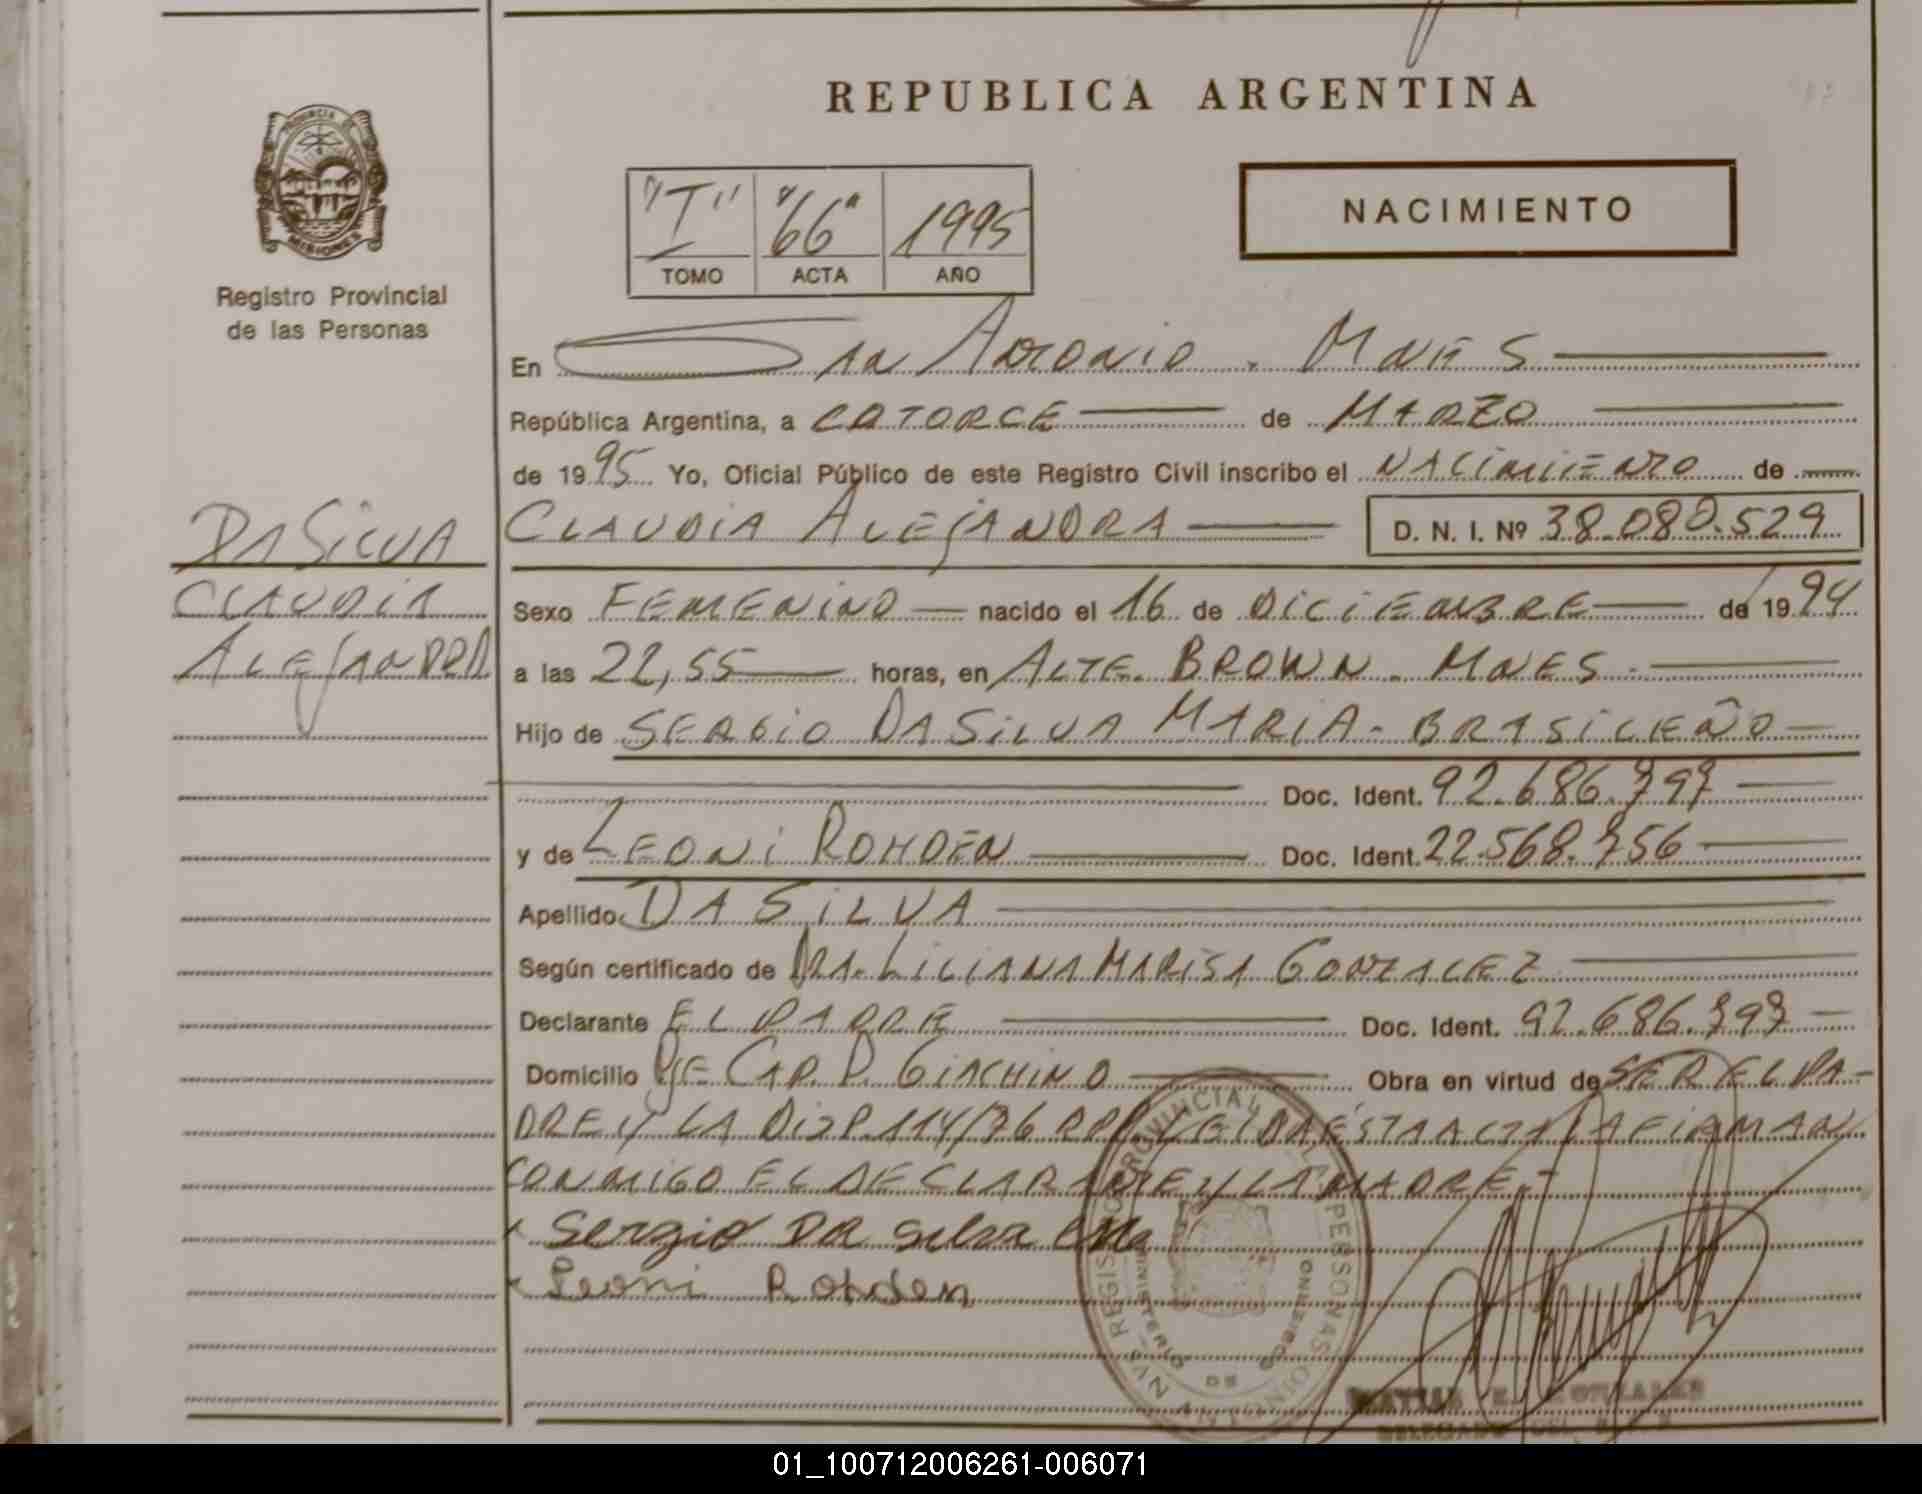 REPUBLICA ARGENTINA
PROVINCIA DE
MISIONES
Registro Provincial
de las Personas
"T" "66" 1995
TOMO ACTA AÑO
NACIMIENTO
En San Antonio - Mnes
República Argentina, a CATORCE de MARZO
de 1995 Yo, Oficial Público de este Registro Civil inscribo el NACIMIENTO de
DA SILVA
CLAUDIA
ALEJANDRA
CLAUDIA ALEJANDRA D. N. I. Nº 38.080.529
Sexo FEMENINO nacido el 16 de DICIEMBRE de 1994
a las 22,55 horas, en ALTE. BROWN - MNES -
Hijo de SERGIO DA SILVA MARIA - BRASILEÑO
Doc. Ident. 92.686.797
y de LEONI ROHDEN Doc. Ident. 22.568.756
Apellido DA SILVA
Según certificado de DRA. LILIANA MARISA GONZALEZ
Declarante EL PADRE Doc. Ident. 92.686.797
Domicilio PJE CAP. P. GIACHINO Obra en virtud de SER EL PA-
DRE Y LA DISP. 114/76 RPP. LEIDA ÉSTA ACTA LA FIRMAN
CONMIGO EL DECLARANTE Y LA MADRE.-
Sergio DA Silva
Leoni Rohden
REGISTRO PROVINCIAL DE LAS PERSONAS
MINISTERIO DE GOBIERNO
GONZALEZ
DELEGADO DEL
01_100712006261-006071